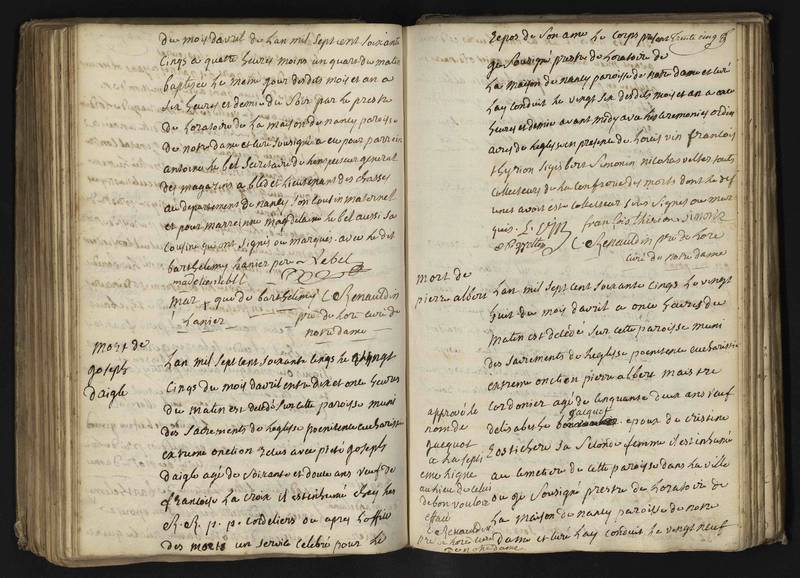 du mois davril de lan mil sept cent soixante
cinq a quatre heures moins un quart du matin
baptisée le meme jour desdits mois et an a
six heures et demie du soir par le prestre
de loratoire de la maison de nancy paroisse
de notre dame et curé soussigné a eu pour parrein
antoine le bel secretaire de linspecteur general
des magazins a bled et lieutenant des chasses
au departement de nancy son cousin maternel
et pour marreinne magdelaine le bel aussi sa
cousine qui ont signés ou marqués avec le dit
barthelemy hanier pere Lebel
madelaine lebel
mar + que de barthelemy C Renauldin
hanier pre de lore curé de
notre dame
mort de
joseph
daigle
Lan mil sept cent soixante cinq le vingt
cinq du mois davril entre dix et onze heures
du matin est decedé sur cette paroisse muni
des sacrements de leglise poenitence eucharistie
extreme onction reçus avec pieté joseph
daigle agé de soixante et douze ans veuf de
francoise la croix il est inhumé chez les
R. R. p. p. cordeliers ou apres loffice
des morts un service celebré pour le
repos de son ame le corps present
je soussigné prestre de loratoire de
la maison de nancy paroisse de notre dame et curé
lay conduit le vingt six desdits mois et an a onze
heures et demie avant midy avec les ceremonies ordin
aires de leglise en presence de louis vin francois
thyrion sigisbert simonin nicolas valtes touts
collecteurs de la confrerie des morts dont le def
unct avoit esté collecteur soussignés ou mar
qués. L. vin francois thirion Simonin
C Renauldin pre de lore
curé de notre dame
mort de
pierre albert
Lan mil sept cent soixante cinq le vingt
huit du mois davril a onze heures du
matin est decedé sur cette paroisse muni
des sacrements de leglise poenitence eucharistie
extreme onction pierre albert maistre
cordonier agé de cinquante deux ans veuf
jacquot
delisabethe epoux de cristine
sa seconde femme il est inhumé
au cimetiere de cette paroisse dans la ville
ou je soussigné prestre de loratoire de
la maison de nancy paroisse de notre
dame et curé lay conduit le vingt neuf
approuvé le
nom de
jacquot
a la septi
eme ligne
au lieu de celui
de bonvouloir
effacé
C Renauldin
pre de lore curé
de notre dame